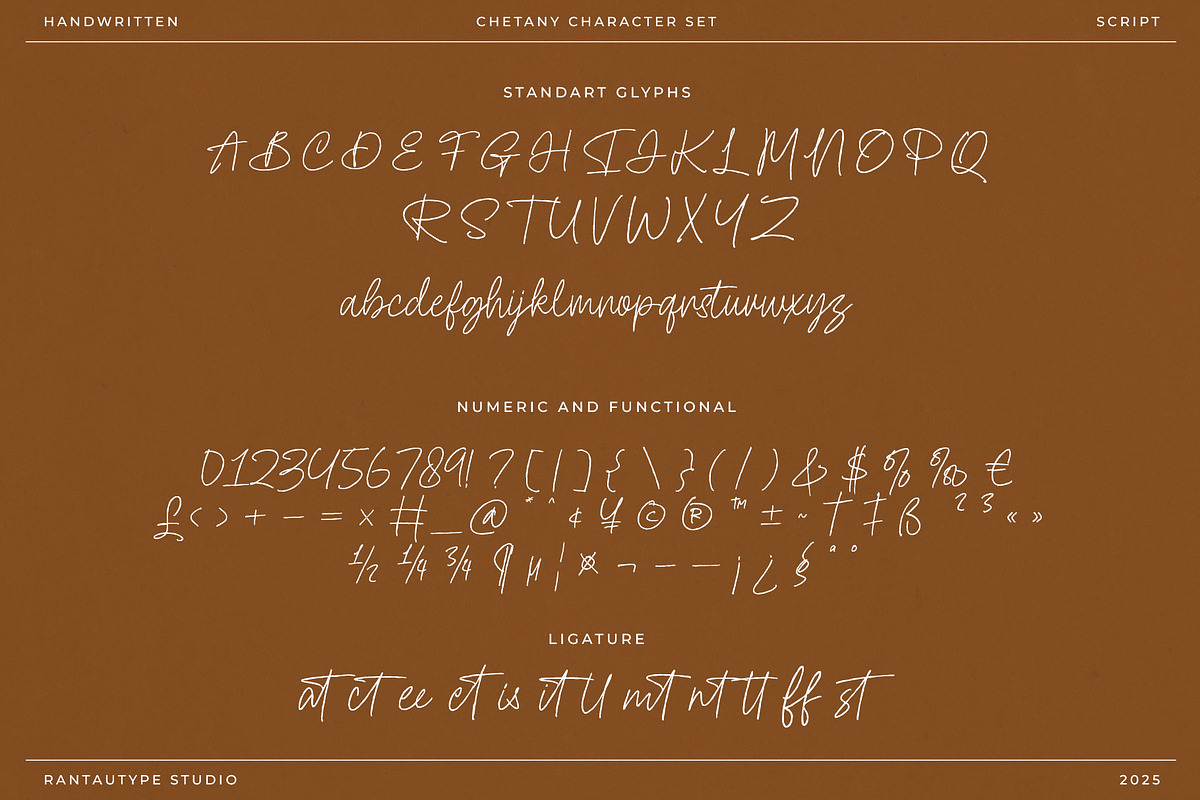 HANDWRITTEN CHETANY CHARACTER SET SCRIPT
STANDART GLYPHS
ABCDEFGHIJKLMNOPQ
RSTUVWXYZ
abcdefghijklmnopqrstuvwxyz
NUMERIC AND FUNCTIONAL
0123456789!?[|]{\}(/)&$%‰€
£‹›+−=×#_@*^¢¥©®™±~†‡ß²³«»
½¼¾¶µ¦¤¬–—¡¿§ªº
LIGATURE
at ct ee et is it ll mt nt tt ff st
RANTAUTYPE STUDIO 2025